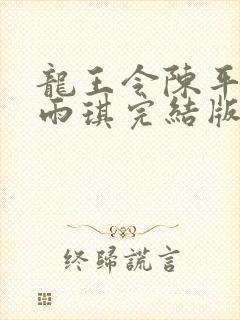 龍王令陳平
雨琪完結版
终歸謊言